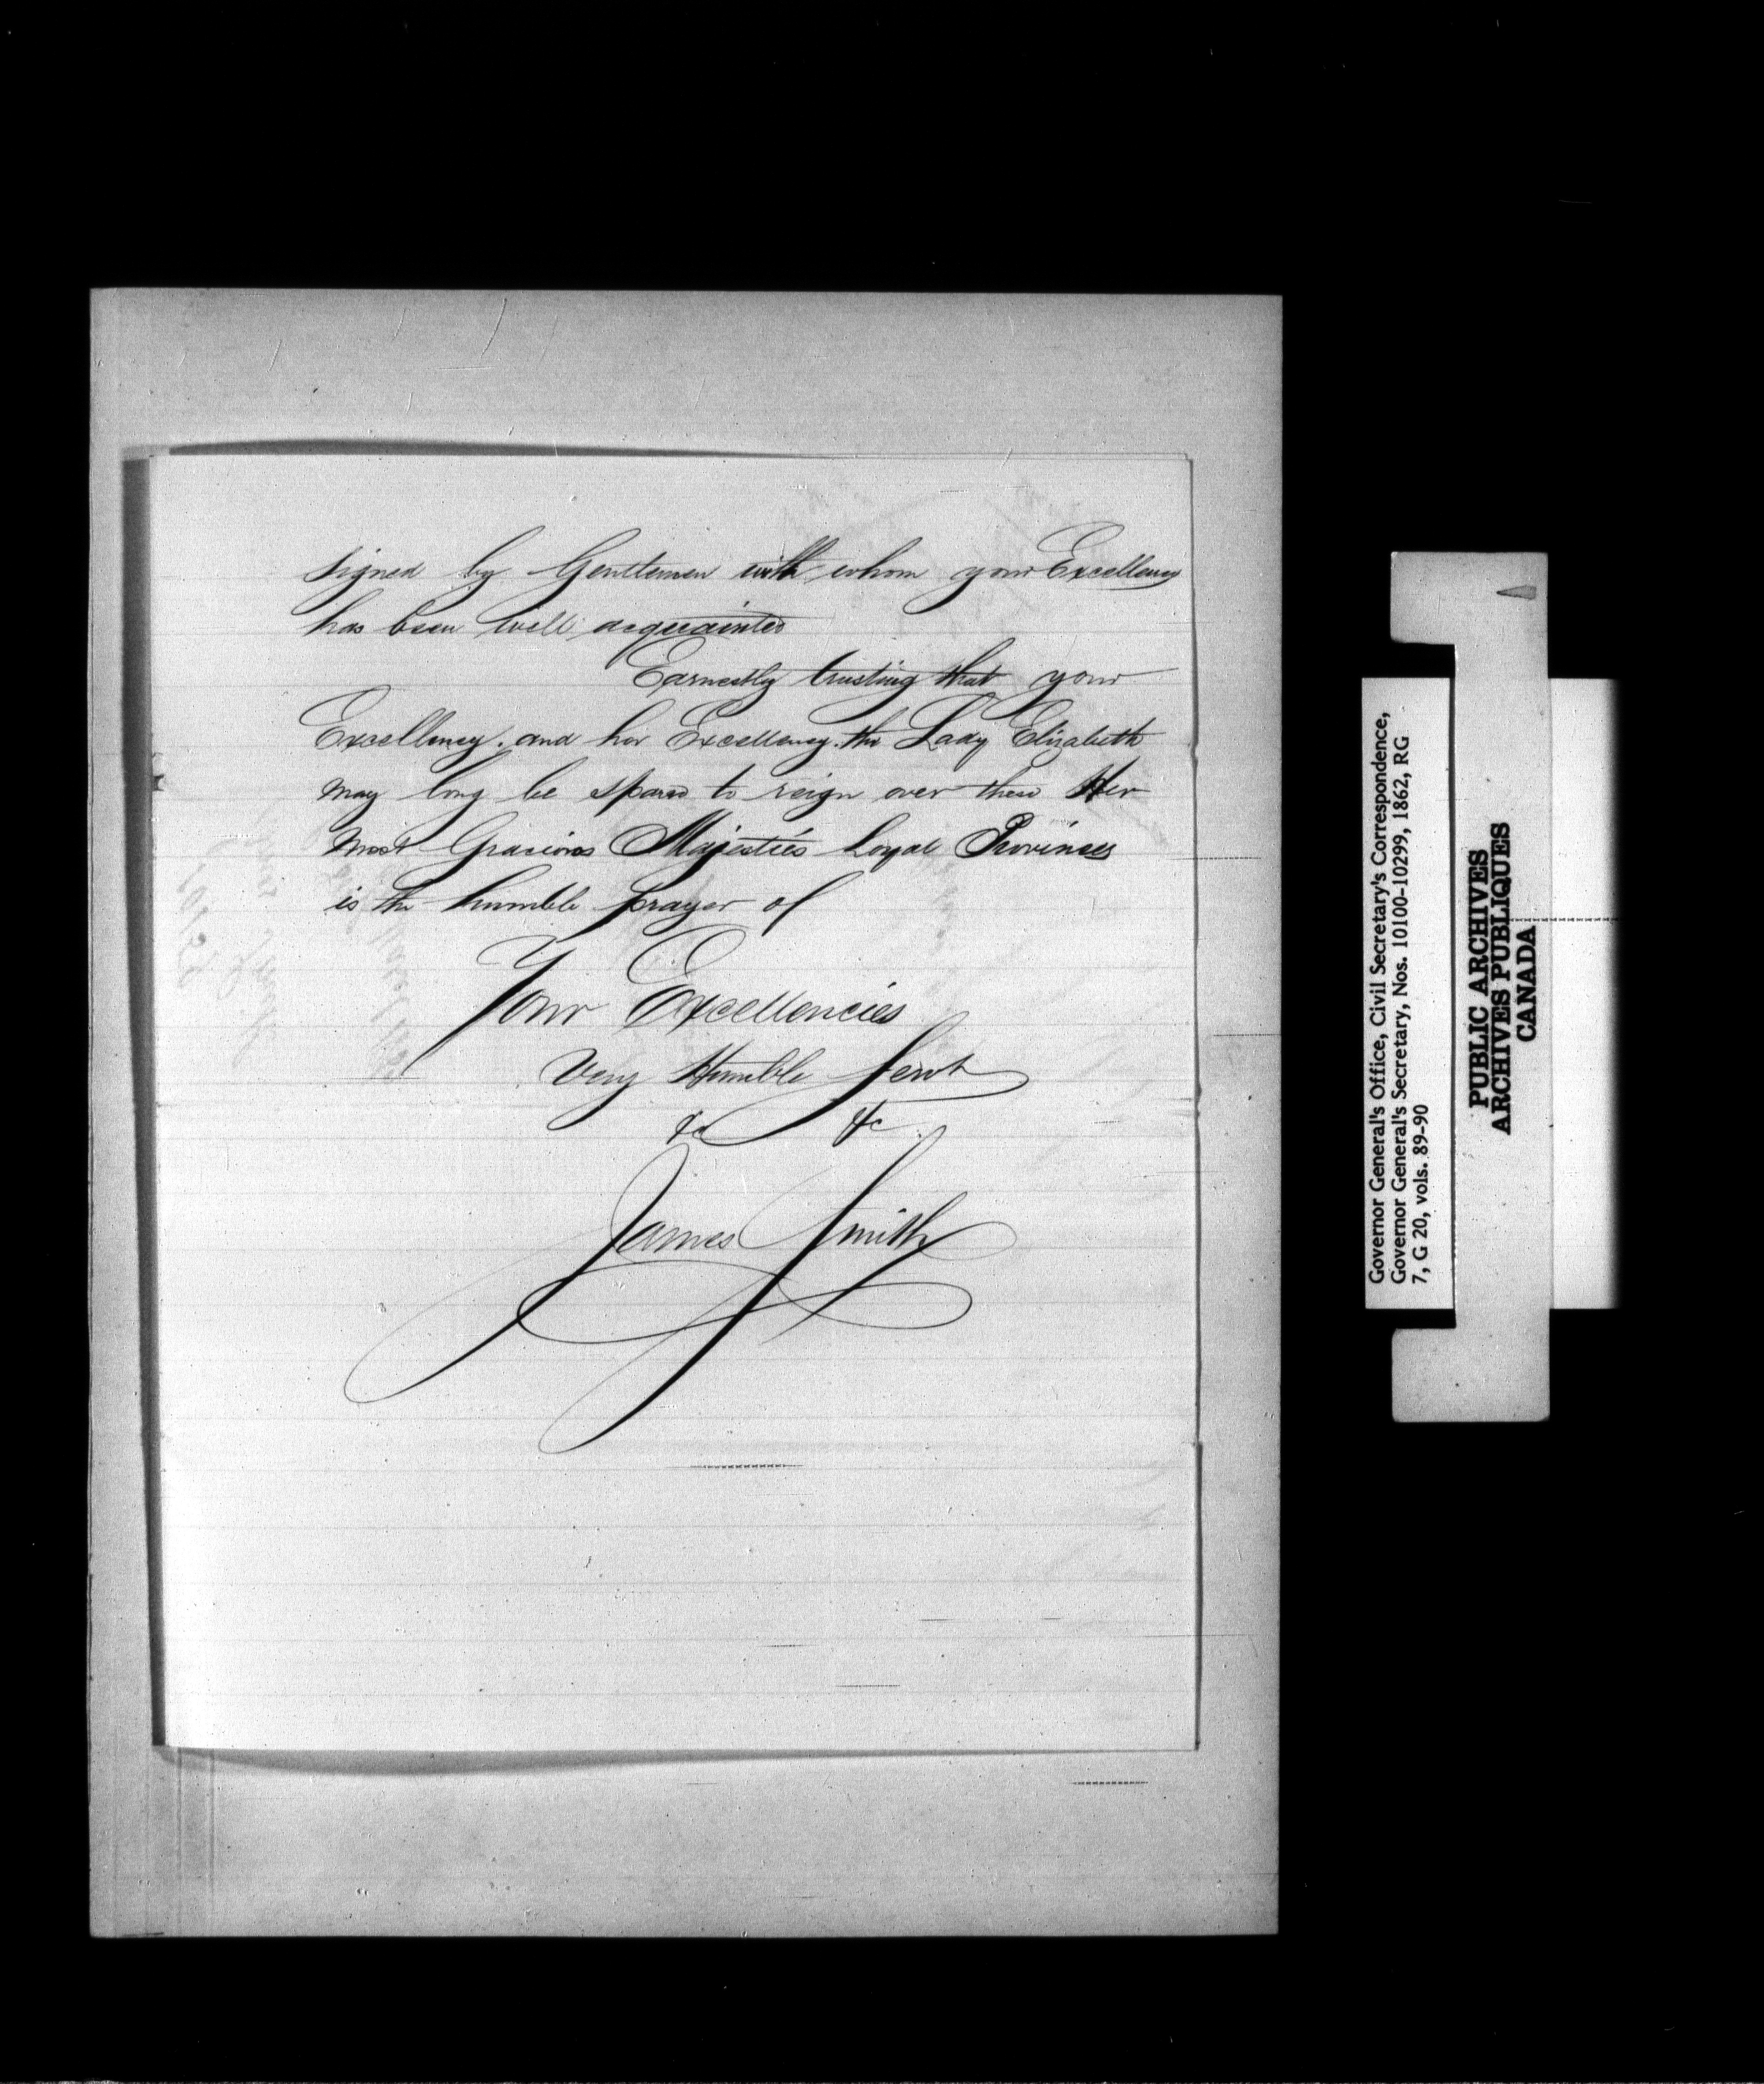 signed by Gentlemen with whom your Excellency
has been well acquainted
Earnestly trusting that your
Excellency. and her Excellency. the Lady Elizabeth
may long be spared to reign over these Her
Most Gracious Majestie's Loyal Provinces
is the humble prayer of
Your Excellencies
Very Humble Servt
&c &c
James Smith
Governor General's Office, Civil Secretary's Correspondence,
Governor General's Secretary, Nos. 10100-10299, 1862, RG
7, G 20, vols. 89-90
PUBLIC ARCHIVES
ARCHIVES PUBLIQUES
CANADA